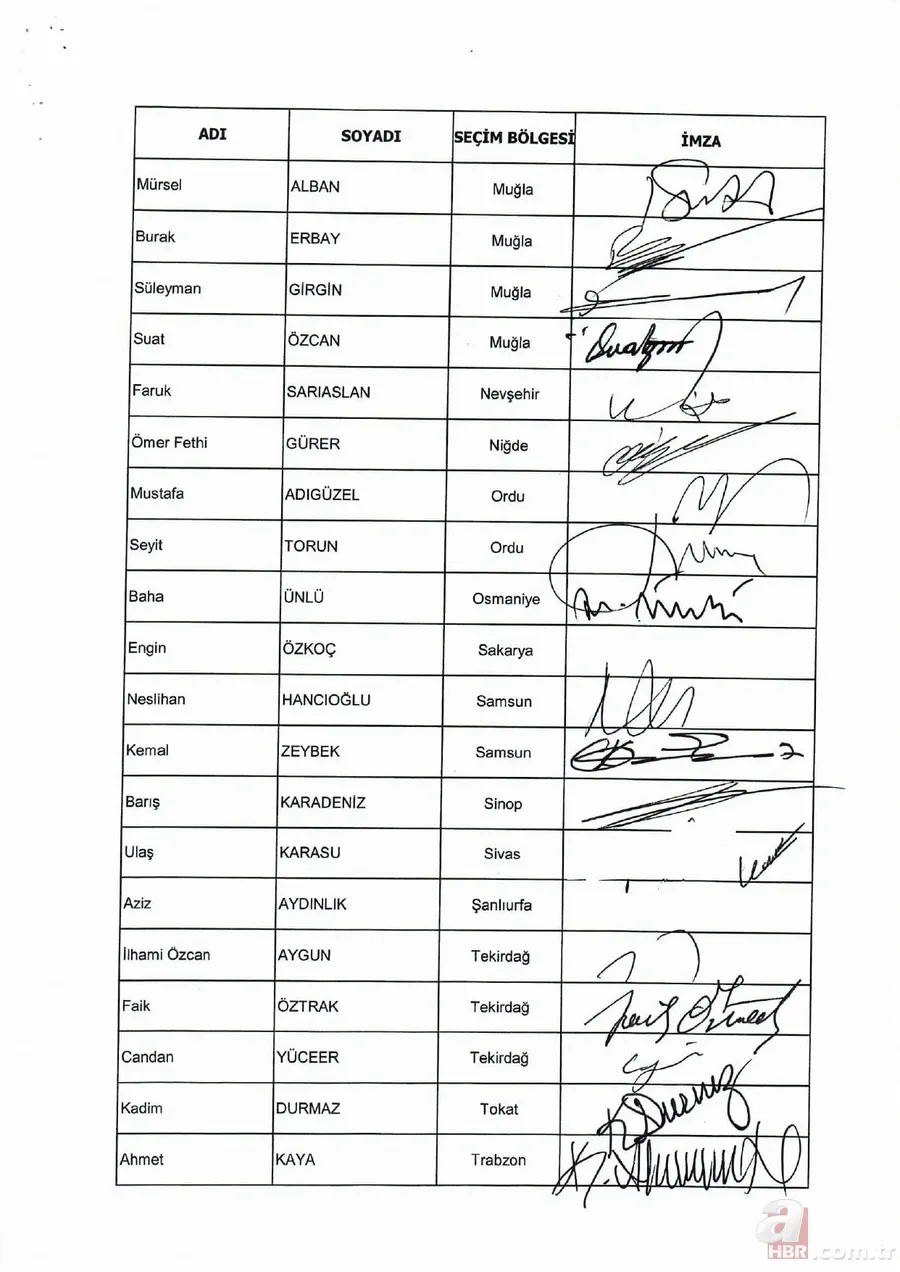 ADI SOYADI SEÇİM BÖLGESİ İMZA
Mürsel ALBAN Muğla
Burak ERBAY Muğla
Süleyman GİRGİN Muğla
Suat ÖZCAN Muğla
Faruk SARIASLAN Nevşehir
Ömer Fethi GÜRER Niğde
Mustafa ADIGÜZEL Ordu
Seyit TORUN Ordu
Baha ÜNLÜ Osmaniye
Engin ÖZKOÇ Sakarya
Neslihan HANCIOĞLU Samsun
Kemal ZEYBEK Samsun
Barış KARADENİZ Sinop
Ulaş KARASU Sivas
Aziz AYDINLIK Şanlıurfa
İlhami Özcan AYGUN Tekirdağ
Faik ÖZTRAK Tekirdağ
Candan YÜCEER Tekirdağ
Kadim DURMAZ Tokat
Ahmet KAYA Trabzon
a
HBR.com.tr